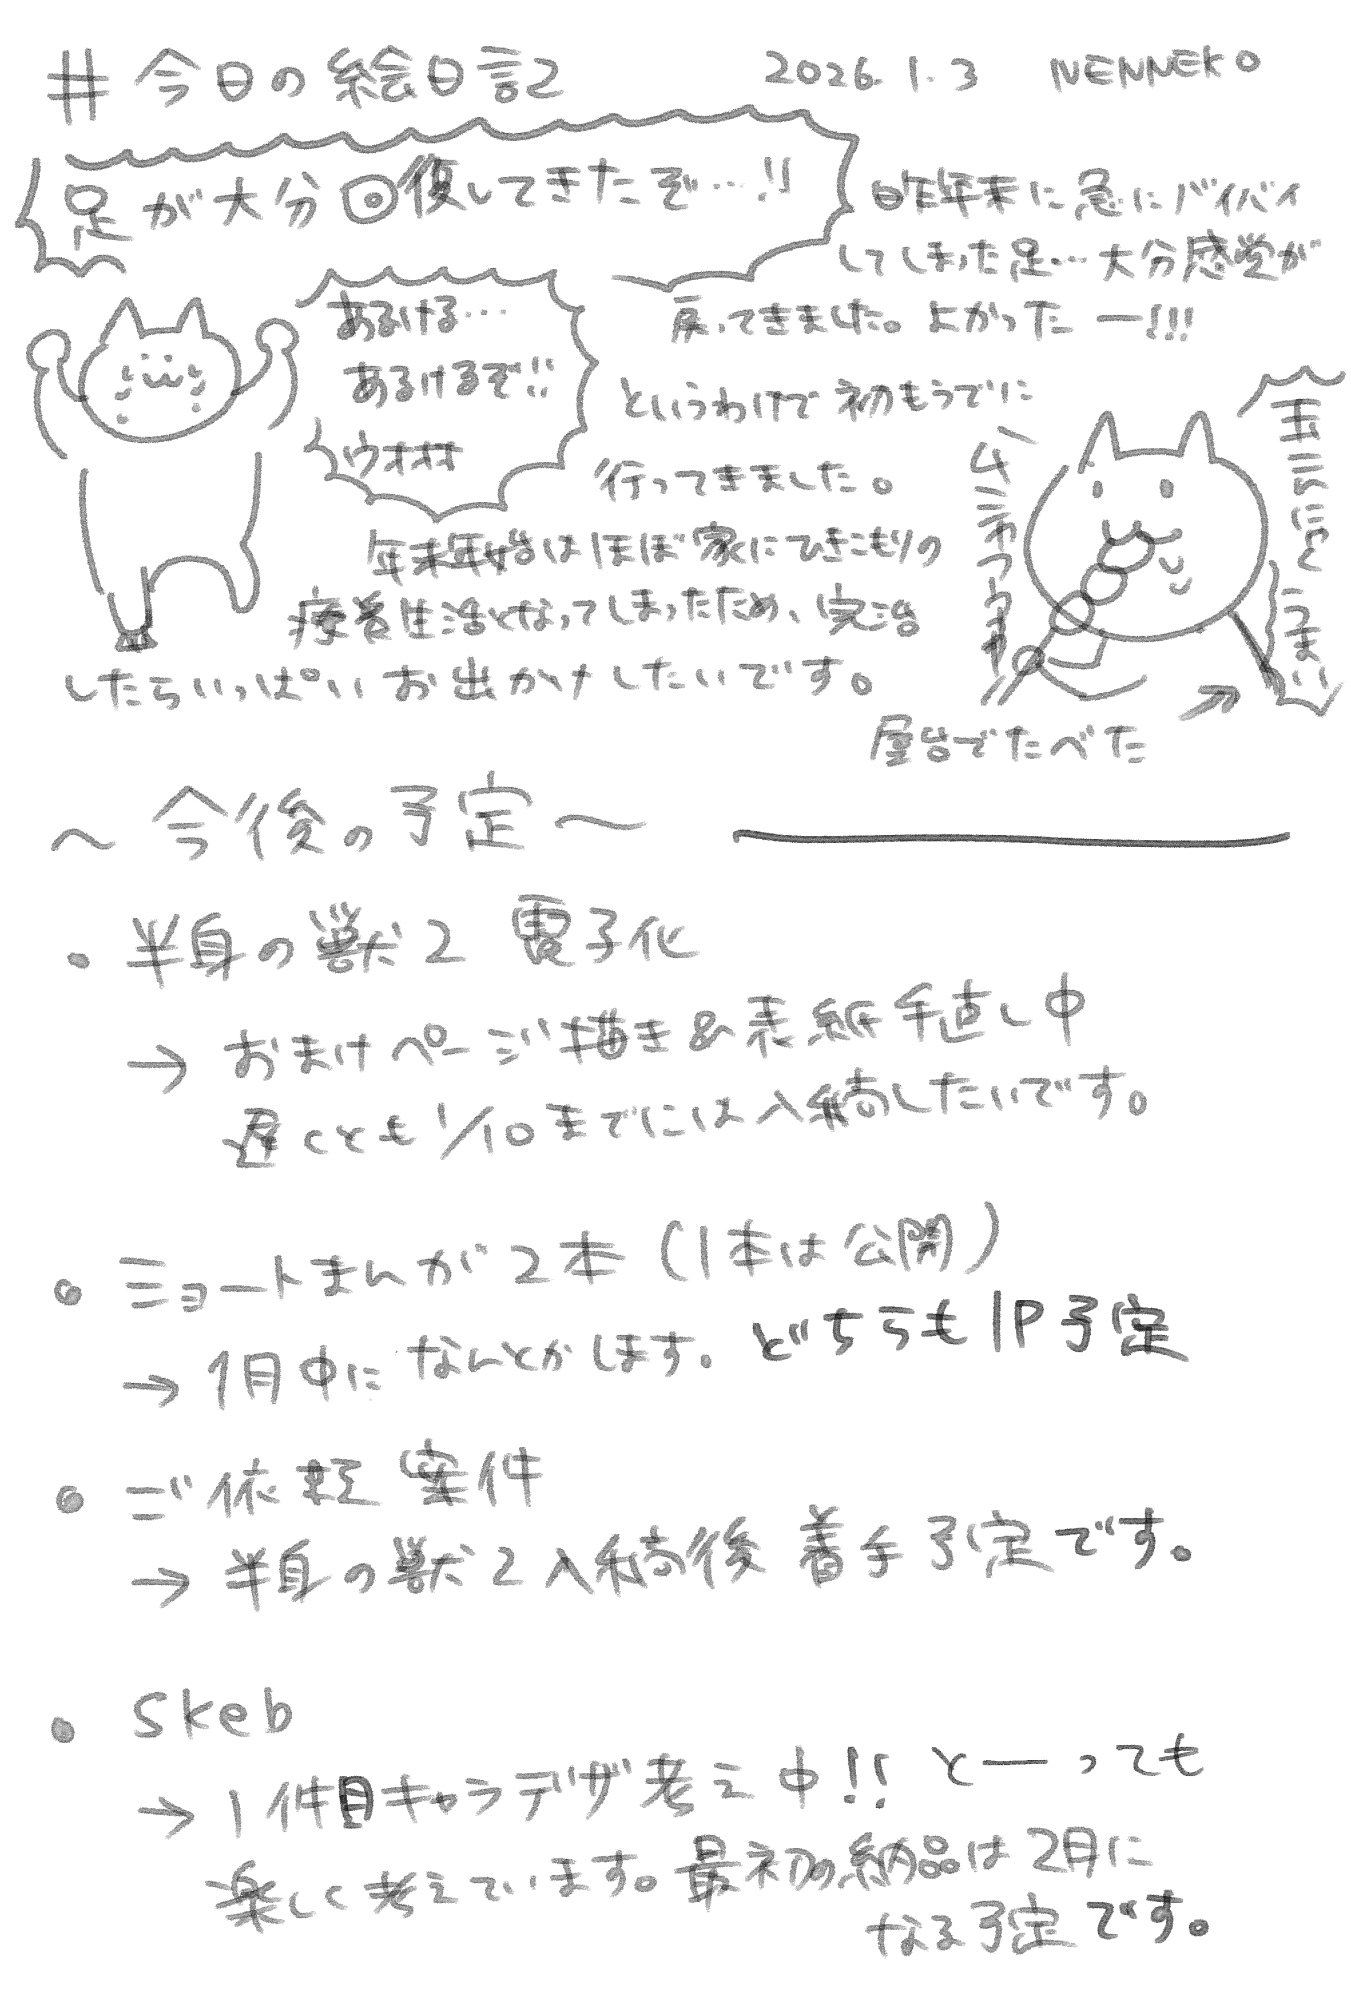 #今日の絵日記 2026.1.3 NENNEKO
足が大分回復してきたぞ…!!
昨年末に急にバイバイ
してしまった足…大分感覚が
戻ってきました。よかったー!!!
あるける…
あるけるぞ!!
ウオオオ
というわけで初もうでに
行ってきました。
年末年始はほぼ家にひきこもりの
療養生活となってしまったため、完治
したらいっぱいお出かけしたいです。
玉こんにゃくうまい
屋台でたべた
〜今後の予定〜
・半身の獣2 電子化
→おまけページ描き&表紙手直し中
遅くとも1/10までには入稿したいです。
・ショートまんが2本(1本は公開)
→1月中になんとかします。どちらも1P予定
・ご依頼案件
→半身の獣2入稿後着手予定です。
・Skeb
→1件目キャラデザ考え中!!とーっても
楽しく考えています。最初の納品は2月に
なる予定です。